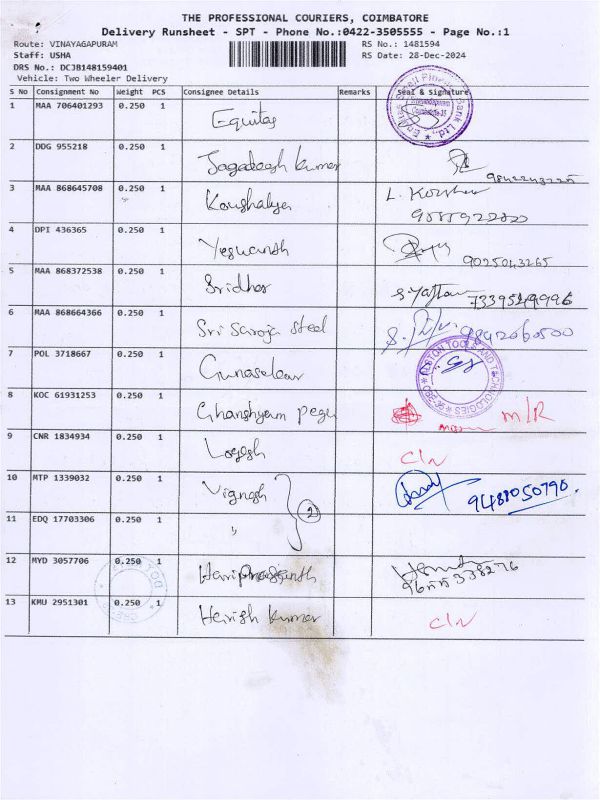 THE PROFESSIONAL COURIERS, COIMBATORE
Delivery Runsheet - SPT - Phone No.:0422-3505555 - Page No.:1
Route: VINAYAGAPURAM RS No.: 1481594
Staff: USHA RS Date: 28-Dec-2024
DRS No.: DCJB148159401
Vehicle: Two Wheeler Delivery
S No Consignment No Weight PCS Consignee Details Remarks Seal & Signature
1 MAA 706401293 0.250 1 Equitas
2 DDG 955218 0.250 1 Jagadeesh kumar
3 MAA 868645708 0.250 1 Koushalya
4 DPI 436365 0.250 1 Yeswanth 9025043265
5 MAA 868372538 0.250 1 Sridhar 7339549996
6 MAA 868664366 0.250 1 Sri Saroja Steel 9842060500
7 POL 3718667 0.250 1 Gunasekar
8 KOC 61931253 0.250 1 Ghanshyam pegu M/R
9 CNR 1834934 0.250 1 Logesh C/N
10 MTP 1339032 0.250 1 Vignesh 9488050790
2
11 EDQ 17703306 0.250 1 "
12 MYD 3057706 0.250 1 Hariprasanth 9655338276
13 KMU 2951301 0.250 1 Harish kumar C/N